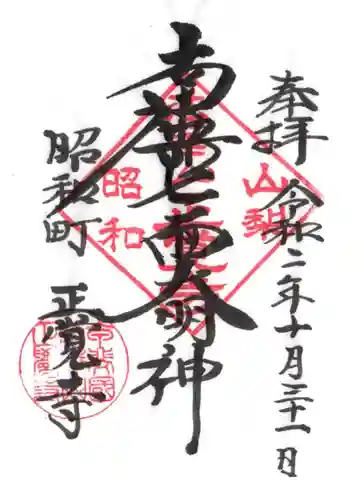 奉拝 令和二年十月三十一日
南無七面大明神
山梨
昭和
昭和町 正覚寺